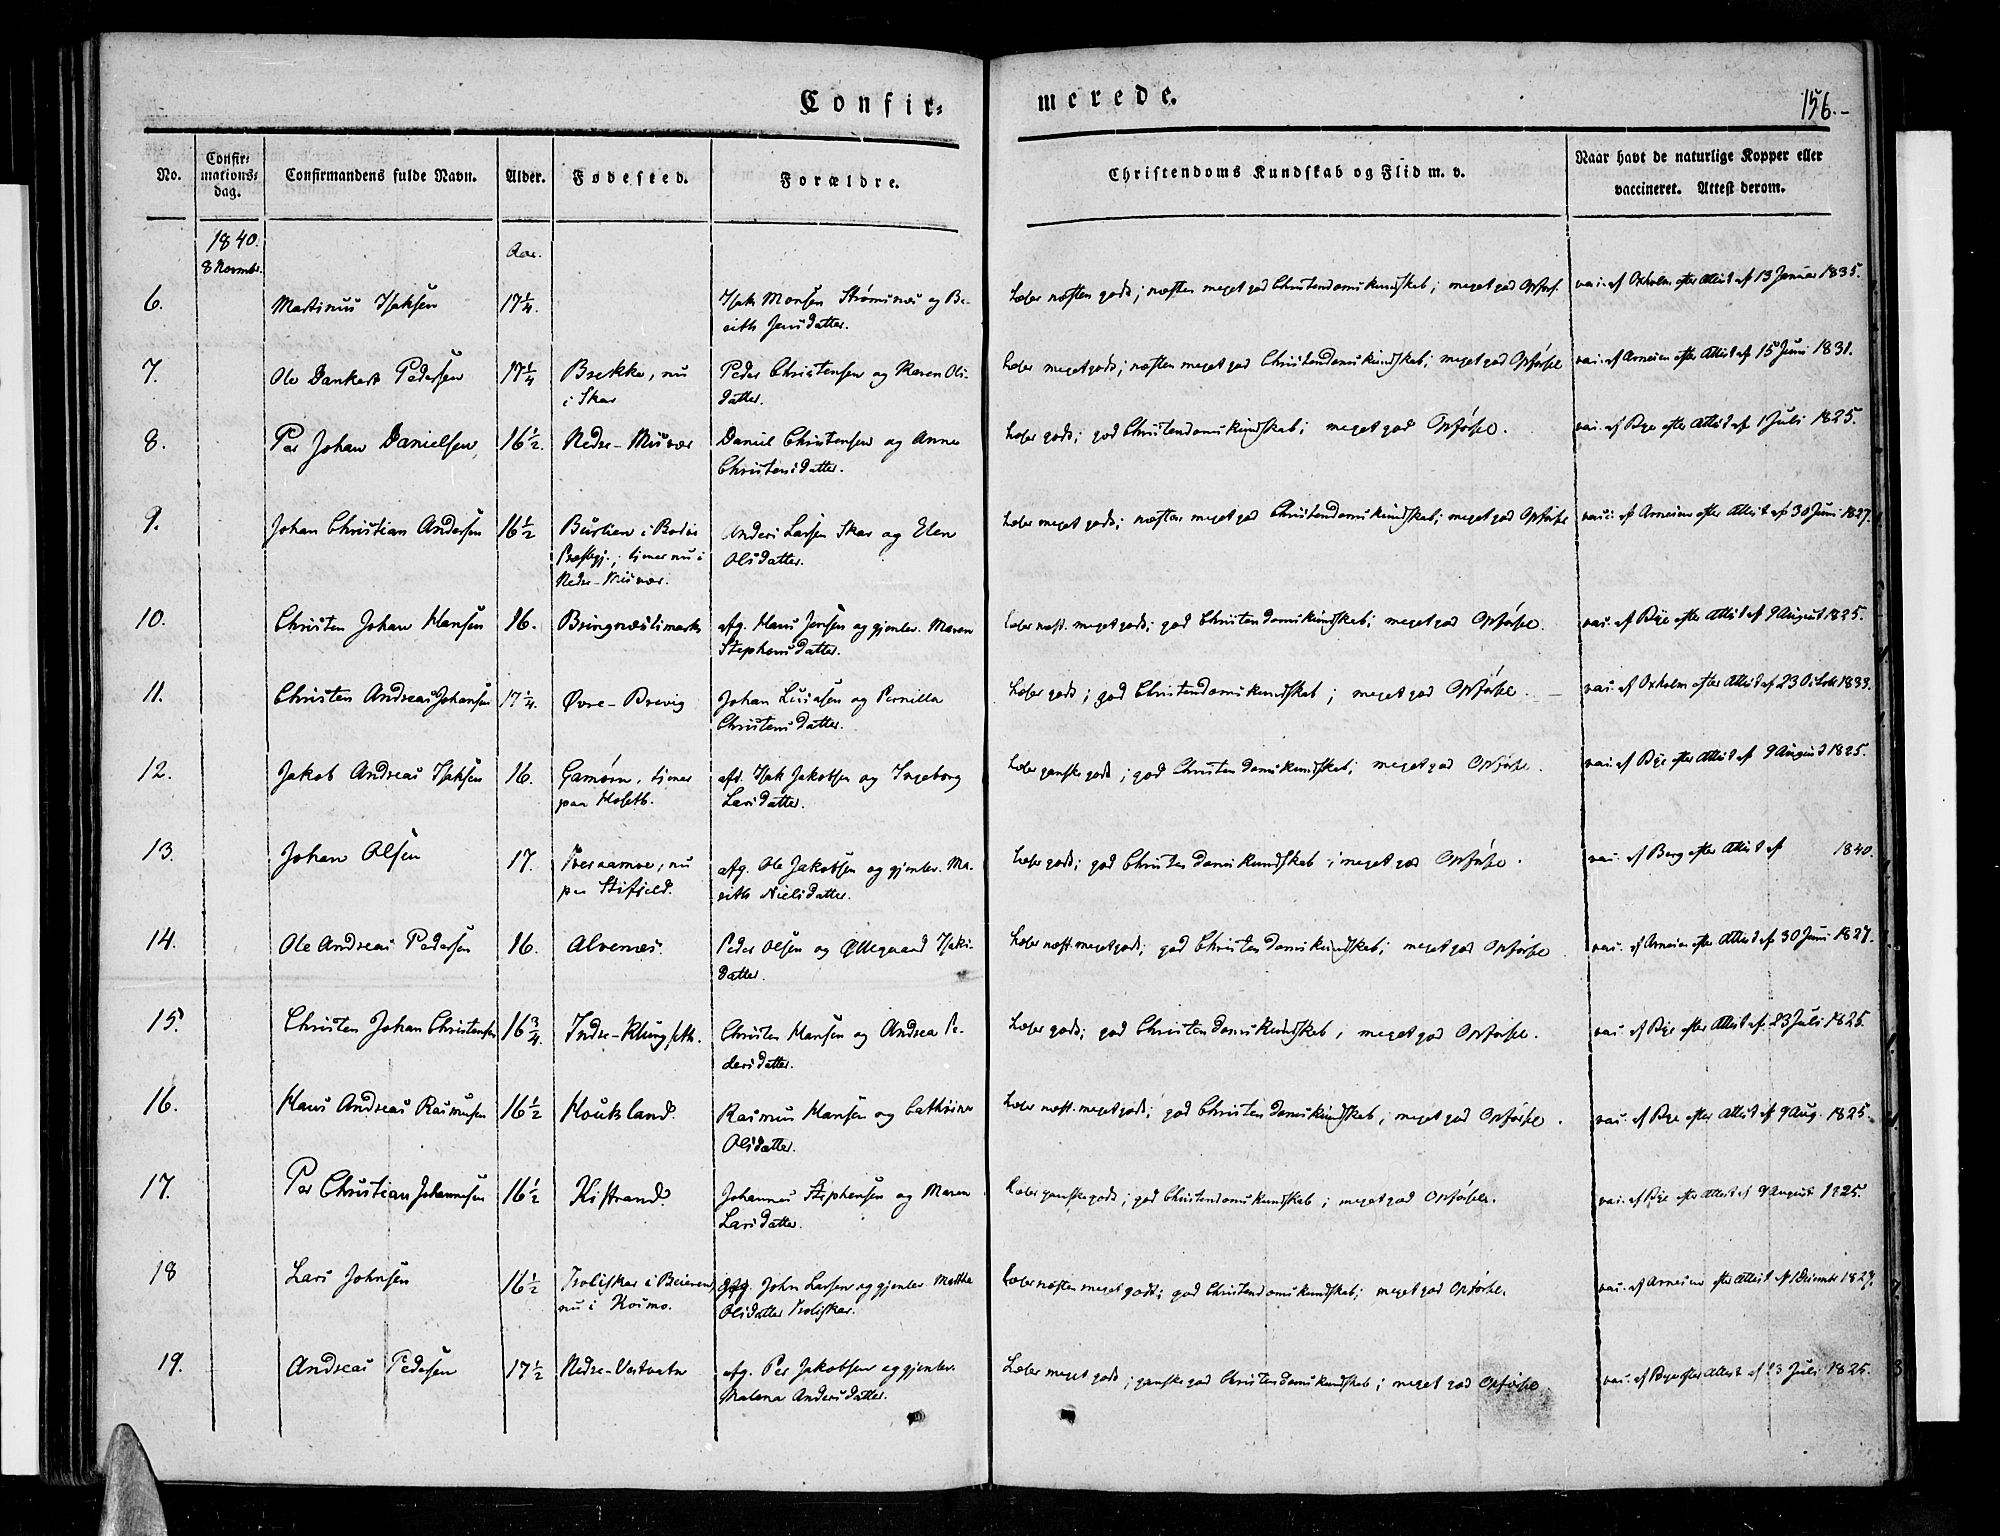 Confir-
merede.
156.-
No.
Confir-
mations-
dag.
Confirmandens fulde Navn.
Alder.
Fødested.
Forældre.
Christendoms Kundskab og Flid m. v.
Naar havt de naturlige Kopper eller
vaccineret. Attest derom.
1840.
8 Novmbr.
Aar.
6.
Martinus Isaksen
17¼.
Isak Monsen Strømsnæs og Be-
reith Jensdatter.
Læser næsten godt; næsten meget god Christendomskundskab; meget god Opførs.
vac. af Oxholm efter Attest af 13 Januar 1835.
7.
Ole Dankert Pedersen
17¼
Brekke, nu
i Skar
Peder Christensen og Karen Ols-
datter.
Læser meget godt; næsten meget god Christendomskundskab; meget god Opførsel
vac. af Arnesen efter Attest af 15 Juni 1831.
8.
Per Johan Danielsen
16½.
Nedre-Misvær
Daniel Christensen og Anne
Christensdatter.
Læser godt; god Christendomskundskab; meget god Opførsel.
vac. af Bye efter Attest af 1 Juli 1825.
9.
Johan Christian Andersen
16½
i Bodø
Præstegj., tjener nu i
Nedre-Misvær.
Anders Larsen Skar og Elen
Olsdatter.
Læser meget godt; næsten meget god Christendomskundskab; meget god Opførsel
vac. af Arnesen efter Attest af 30 Juni 1827.
10.
Christen Johan Hansen
16.
Bringnæslimarken
afg. Hans Jensen og gjenlev. Maren
Stephensdatter.
Læser næst. meget godt; god Christendomskundskab; meget god Opførsel.
vac. af Bye efter Attest af 9 August 1825.
11.
Christen Andreas Johansen
17¼.
Øvre-Brevig
Johan Lucasen og Pernilla
Christensdatter.
Læser godt; god Christendomskundskab; meget god Opførsel.
vac. af Oxholm efter Attest af 23 Octobr 1833.
12.
Jakob Andreas Isaksen
16.
Gamøen, tjener
paa Hoseth.
afd. Isak Jakobsen og Ingeborg
Larsdatter.
Læser ganske godt; god Christendomskundskab; meget god Opførsel.
vac. af Bye efter Attest af 9 August 1825.
13.
Johan Olsen
17.
nu
paa Stifjeld.
afg. Ole Jakobsen og gjenlev. Ma-
rith Nielsdatter.
Læser godt; god Christendomskundskab; meget god Opførsel.
vac. af Berg efter Attest af 1840.
14.
Ole Andreas Pedersen
16.
Alvenæs.
Peder Olsen og Ellegaard Isaks-
datter.
Læser næst. meget godt; god Christendomskundskab; meget god Opførsel
vac. af Arnesen efter Attest af 30 Juni 1827.
15.
Christen Johan Christensen
16¾.
Indre-Klungseth.
Christen Hansen og Andrea Pe-
dersdatter.
Læser godt; god Christendomskundskab; meget god Opførsel.
vac. af Bye efter Attest af 23 Juli 1825.
16.
Hans Andreas Rasmusen
16½
Koukland.
Rasmus Hansen og Cathrine
Olsdatter.
Læser næst. meget godt; god Christendomskundskab; meget god Opførsel.
vac. af Bye efter Attest af 9 Aug. 1825.
17.
Per Christian Johannesen
16½
Kistrand.
Johannes Stephensen og Maren
Larsdatter.
Læser ganske godt; god Christendomskundskab; meget god Opførsel.
vac. af Bye efter Attest af 9 August 1825.
18
Lars Johnsen
16½
Troliskar i Beieren,
nu i Kosmo.
afg. John Larsen og gjenlev. Martha
Olsdatter Troliskar.
Læser næsten meget godt; god Christendomskundskab; meget god Opførsel.
vac. af Arnesen efter Attest af 1 Decembr 1827.
19.
Andreas Pedersen
17½
Nedre-Vestvatn
afg. Per Jakobsen og gjenlev.
Malena Andersdatter.
Læser meget godt; ganske god Christendomskundskab; meget god Opførsel
vac. af Bye efter Attest af 23 Juli 1825.